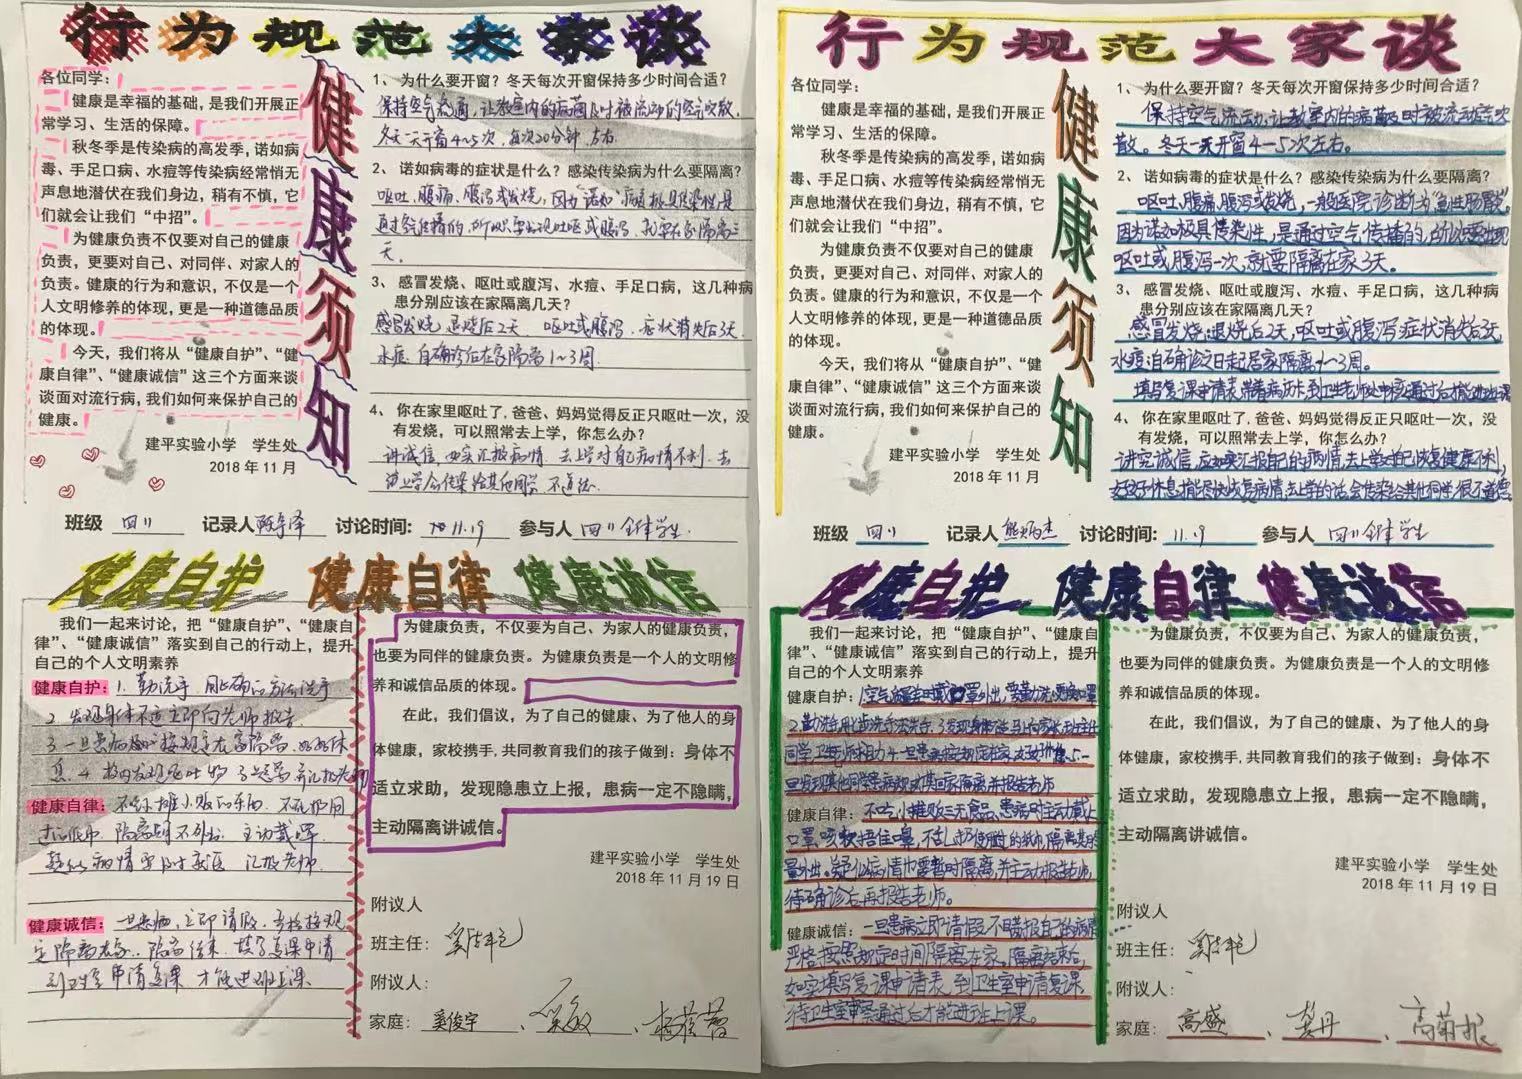 行为规范大家谈
健康须知
各位同学：
健康是幸福的基础，是我们开展正
常学习、生活的保障。
秋冬季是传染病的高发季，诺如病
毒、手足口病、水痘等传染病经常悄无
声息地潜伏在我们身边，稍有不慎，它
们就会让我们“中招”。
为健康负责不仅要对自己的健康
负责，更要对自己、对同伴、对家人的
负责。健康的行为和意识，不仅是一个
人文明修养的体现，更是一种道德品质
的体现。
今天，我们将从“健康自护”、“健
康自律”、“健康诚信”这三个方面来谈
谈面对流行病，我们如何来保护自己的
健康。
建平实验小学 学生处
2018年11月
1、为什么要开窗？冬天每次开窗保持多少时间合适？
保持空气流通，让教室内的病菌及时被流动的空气吹散，
冬天一天开窗4~5次，每次20分钟左右.
2、诺如病毒的症状是什么？感染传染病为什么要隔离？
呕吐、腹痛、腹泻或发烧，因为诺如病毒极具传染性是
通过空气传播的，所以要出现呕吐或腹泻，就要在家隔离三
天。
3、感冒发烧、呕吐或腹泻、水痘、手足口病，这几种病
患分别应该在家隔离几天？
感冒发烧 退烧后2天 呕吐或腹泻，症状消失后3天
水痘、自确诊后在家隔离1~3周
4、你在家里呕吐了，爸爸、妈妈觉得反正只呕吐一次，没
有发烧，可以照常去上学，你怎么办？
讲诚信，如实汇报病情，去上学对自己病情不利，去
上学会传染给其他同学 不道德.
班级 四川 记录人 讨论时间： 11.19 参与人 四川全体学生.
健康自护 健康自律 健康诚信
我们一起来讨论，把“健康自护”、“健康自
律”、“健康诚信”落实到自己的行动上，提升
自己的个人文明素养
健康自护：1. 勤洗手，用正确的方法洗手
2. 发现身体不适立即向老师报告
3. 一旦患病按规定在家隔离，好好休
息 4. 校内发现呕吐物
健康自律：不吃小摊小贩的东西，不乱扔用
过的纸巾，隔离期不外出 主动戴口罩
疑似病情要及时就医 汇报老师.
健康诚信：一旦患病，立即请假，严格按规
定隔离在家，隔离结束，填写复课申请
到卫生室申请复课 才能进班上课
为健康负责，不仅要为自己、为家人的健康负责，
也要为同伴的健康负责。为健康负责是一个人的文明修
养和诚信品质的体现。
在此，我们倡议，为了自己的健康、为了他人的身
体健康，家校携手，共同教育我们的孩子做到：身体不
适立求助，发现隐患立上报，患病一定不隐瞒，
主动隔离讲诚信。
建平实验小学 学生处
2018年11月19日
附议人
班主任：
附议人：
家庭：奚俊宇、
行为规范大家谈
健康须知
各位同学：
健康是幸福的基础，是我们开展正
常学习、生活的保障。
秋冬季是传染病的高发季，诺如病
毒、手足口病、水痘等传染病经常悄无
声息地潜伏在我们身边，稍有不慎，它
们就会让我们“中招”。
为健康负责不仅要对自己的健康
负责，更要对自己、对同伴、对家人的
负责。健康的行为和意识，不仅是一个
人文明修养的体现，更是一种道德品质
的体现。
今天，我们将从“健康自护”、“健
康自律”、“健康诚信”这三个方面来谈
谈面对流行病，我们如何来保护自己的
健康。
建平实验小学 学生处
2018年11月
1、为什么要开窗？冬天每次开窗保持多少时间合适？
保持空气流动，让教室内的病菌及时被流动空气吹
散。冬天一天开窗4—5次左右。
2、诺如病毒的症状是什么？感染传染病为什么要隔离？
呕吐、腹痛、腹泻或发烧，一般医院诊断为急性肠胃炎。
因为诺如极具传染性，是通过空气传播的，所以要出现
呕吐或腹泻一次，就要隔离在家3天。
3、感冒发烧、呕吐或腹泻、水痘、手足口病，这几种病
患分别应该在家隔离几天？
感冒发烧：退烧后2天，呕吐或腹泻症状消失后3天，
水痘：自确诊之日起居家隔离1~3周。
填写复课申请表，带着病历卡到卫生老师处审核通过后才能进班上课
4、你在家里呕吐了，爸爸、妈妈觉得反正只呕吐一次，没
有发烧，可以照常去上学，你怎么办？
讲究诚信，应如实汇报自己的病情，去上学对自己恢复健康不利，
好好休息，才能尽快恢复病情，去上学的话，会传染给其他同学，很不道德
班级 四川 记录人 熊炳杰 讨论时间： 11.19 参与人 四川全体学生
健康自护 健康自律 健康诚信
我们一起来讨论，把“健康自护”、“健康自
律”、“健康诚信”落实到自己的行动上，提升
自己的个人文明素养
健康自护：
2.勤洗手，用正确洗手法洗手，3.发现身体不适马上向家长、班主任、
同学、卫生老师求助
一旦发现其他同学患病 回家隔离并报告老师
健康自律：不吃小摊贩三无食品，患病时主动戴上
口罩，咳嗽捂住口鼻，不乱扔使用过的纸巾，隔离期尽
量外出。疑似病情也需暂时隔离，并主动报告老师，
待确诊后再报告老师。
健康诚信：一旦患病立即请假，不隐瞒报自己的病情
严格按照规定时间隔离在家。隔离结束后，
如实填写复课申请表，到卫生室申请复课
待卫生室审察通过后才能进班上课。
为健康负责，不仅要为自己、为家人的健康负责，
也要为同伴的健康负责。为健康负责是一个人的文明修
养和诚信品质的体现。
在此，我们倡议，为了自己的健康、为了他人的身
体健康，家校携手，共同教育我们的孩子做到：身体不
适立求助，发现隐患立上报，患病一定不隐瞒，
主动隔离讲诚信。
建平实验小学 学生处
2018年11月19日
附议人
班主任：
附议人：
家庭：高盛、龚丹、